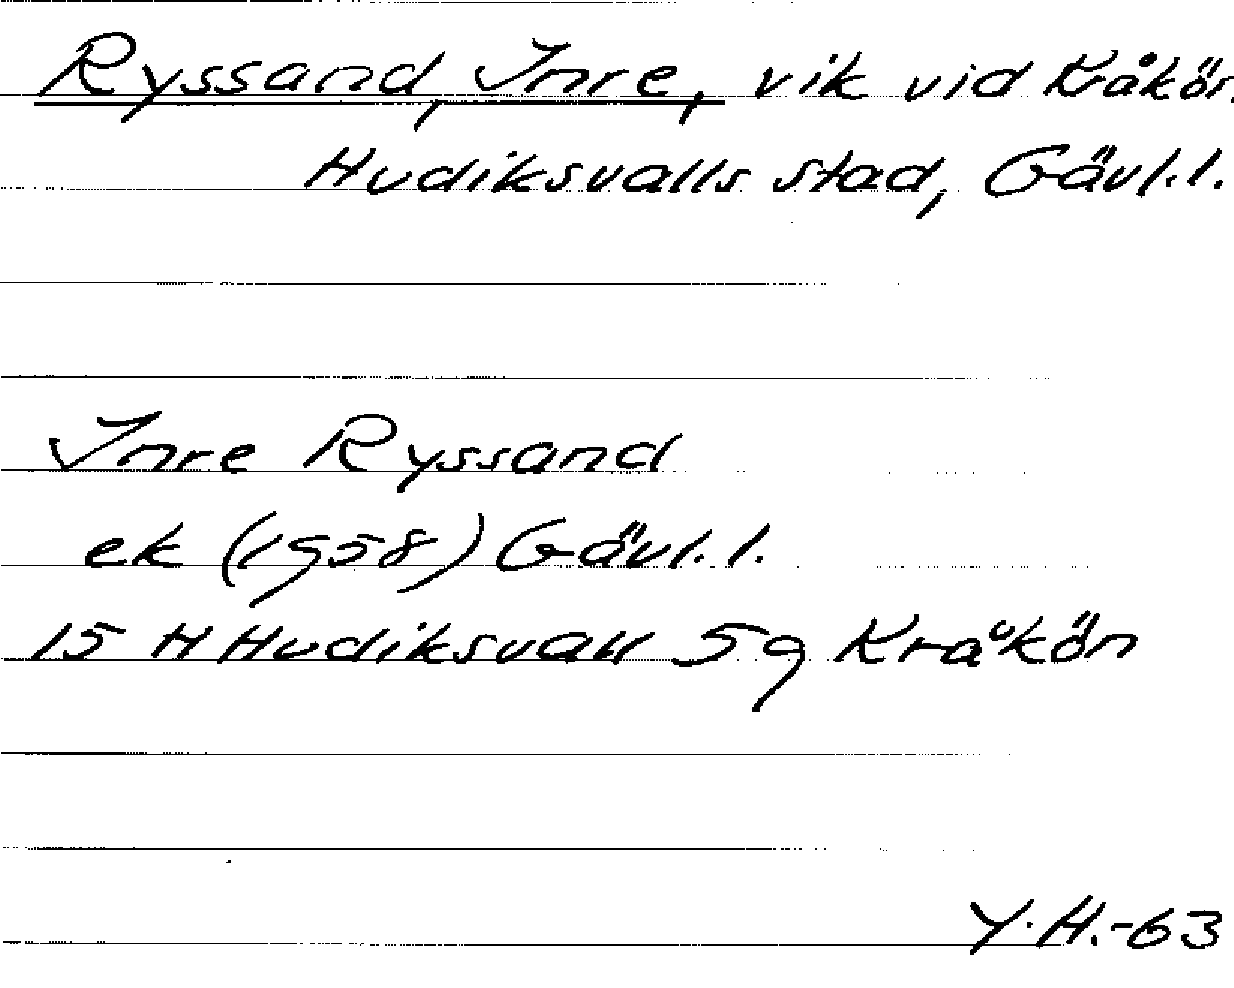 Ryssand, Inre, vik vid Kråkön
Hudiksvalls stad, Gävl.l.
Inre Ryssand
ek (1958) Gävl.l.
15 H Hudiksvall 5g Kråkön
Y.H.-63